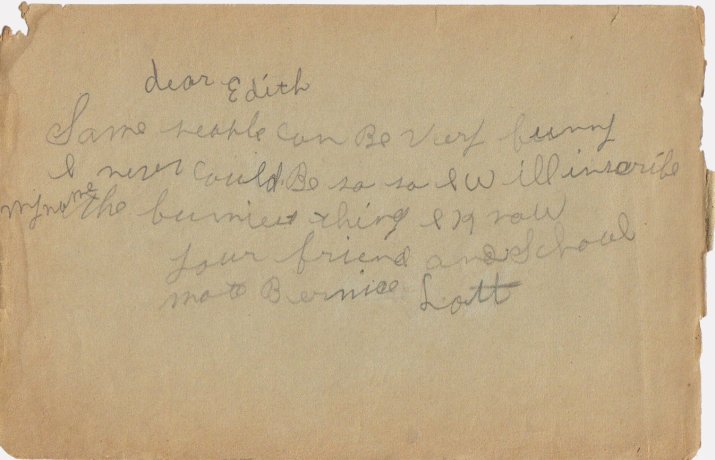 dear Edith
Some people can Be very funny
I never could Be so so I will inscribe
my name the funniest thing I Know
your friend and School
mate Bernice Lott